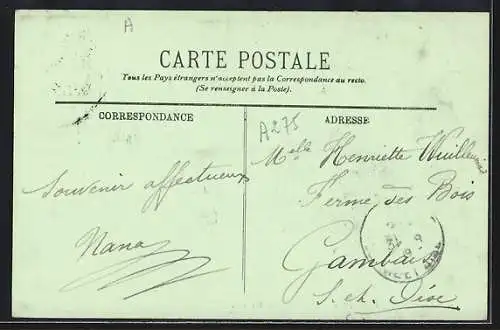 A
CARTE POSTALE
Tous les Pays étrangers n'acceptent pas la Correspondance au recto.
(Se renseigner à la Poste).
CORRESPONDANCE
ADRESSE
A275
Souvenir affectueux
Nana
Melle Henriette
Ferme des Bois
Gambais
S. et Oise